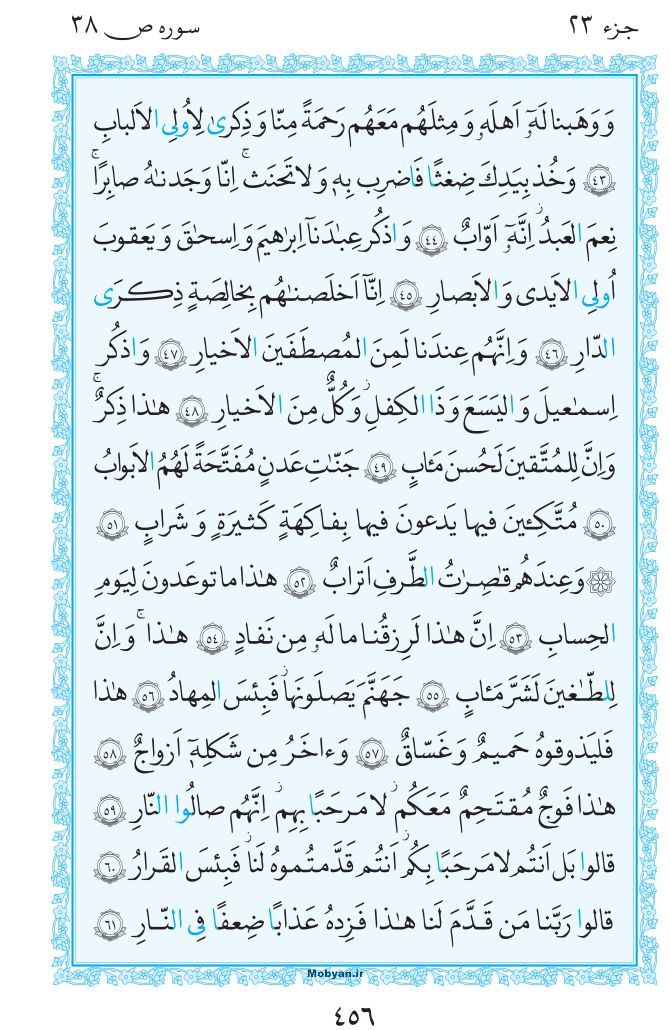 جزء ۲۳
سوره ص ۳۸
وَ وَهَبنا لَهُۥٓ اَهلَهُۥ وَ مِثلَهُم مَعَهُم رَحمَةً مِنّا وَ ذِكرىٰ لِاُولِى الاَلبابِ
﴿٤٣﴾ وَ خُذ بِيَدِكَ ضِغثًا فَاضرِب بِهٖ وَ لا تَحنَث ۗ اِنّا وَجَدنٰهُ صابِرًا ۚ
نِعمَ العَبدُ ۖ اِنَّهُۥٓ اَوّابٌ ﴿٤٤﴾ وَ اذكُر عِبٰدَنآ اِبرٰهيمَ وَ اِسحٰقَ وَ يَعقوبَ
اُولِى الاَيدى وَ الاَبصارِ ﴿٤٥﴾ اِنّآ اَخلَصنٰهُم بِخالِصَةٍ ذِكرَى
الدّارِ ﴿٤٦﴾ وَ اِنَّهُم عِندَنا لَمِنَ المُصطَفَينَ الاَخيارِ ﴿٤٧﴾ وَ اذكُر
اِسمٰعيلَ وَ اليَسَعَ وَ ذَا الكِفلِ ۖ وَ كُلٌّ مِنَ الاَخيارِ ﴿٤٨﴾ هٰذا ذِكرٌ ۚ
وَ اِنَّ لِلمُتَّقينَ لَحُسنَ مَـٔابٍ ﴿٤٩﴾ جَنّٰتِ عَدنٍ مُفَتَّحَةً لَهُمُ الاَبوابُ
﴿٥٠﴾ مُتَّكِـٔينَ فيها يَدعونَ فيها بِفاكِهَةٍ كَثيرَةٍ وَ شَرابٍ ﴿٥١﴾
۞ وَ عِندَهُم قٰصِرٰتُ الطَّرفِ اَترابٌ ﴿٥٢﴾ هٰذا ما توعَدونَ لِيَومِ
الحِسابِ ﴿٥٣﴾ اِنَّ هٰذا لَرِزقُنا ما لَهُۥ مِن نَفادٍ ﴿٥٤﴾ هٰذا ۚ وَ اِنَّ
لِلطّٰغينَ لَشَرَّ مَـٔابٍ ﴿٥٥﴾ جَهَنَّمَ يَصلَونَها ۖ فَبِئسَ المِهادُ ﴿٥٦﴾ هٰذا
فَليَذوقوهُ حَميمٌ وَ غَسّاقٌ ﴿٥٧﴾ وَ ءاخَرُ مِن شَكلِهٖٓ اَزواجٌ ﴿٥٨﴾
هٰذا فَوجٌ مُقتَحِمٌ مَعَكُم ۖ لا مَرحَبًا بِهِم ۖ اِنَّهُم صالُوا النّارِ ﴿٥٩﴾
قالوا بَل اَنتُم لا مَرحَبًا بِكُم ۖ اَنتُم قَدَّمتُموهُ لَنا ۖ فَبِئسَ القَرارُ ﴿٦٠﴾
قالوا رَبَّنا مَن قَدَّمَ لَنا هٰذا فَزِدهُ عَذابًا ضِعفًا فِى النّارِ ﴿٦١﴾
Mobyan.ir
٤٥٦